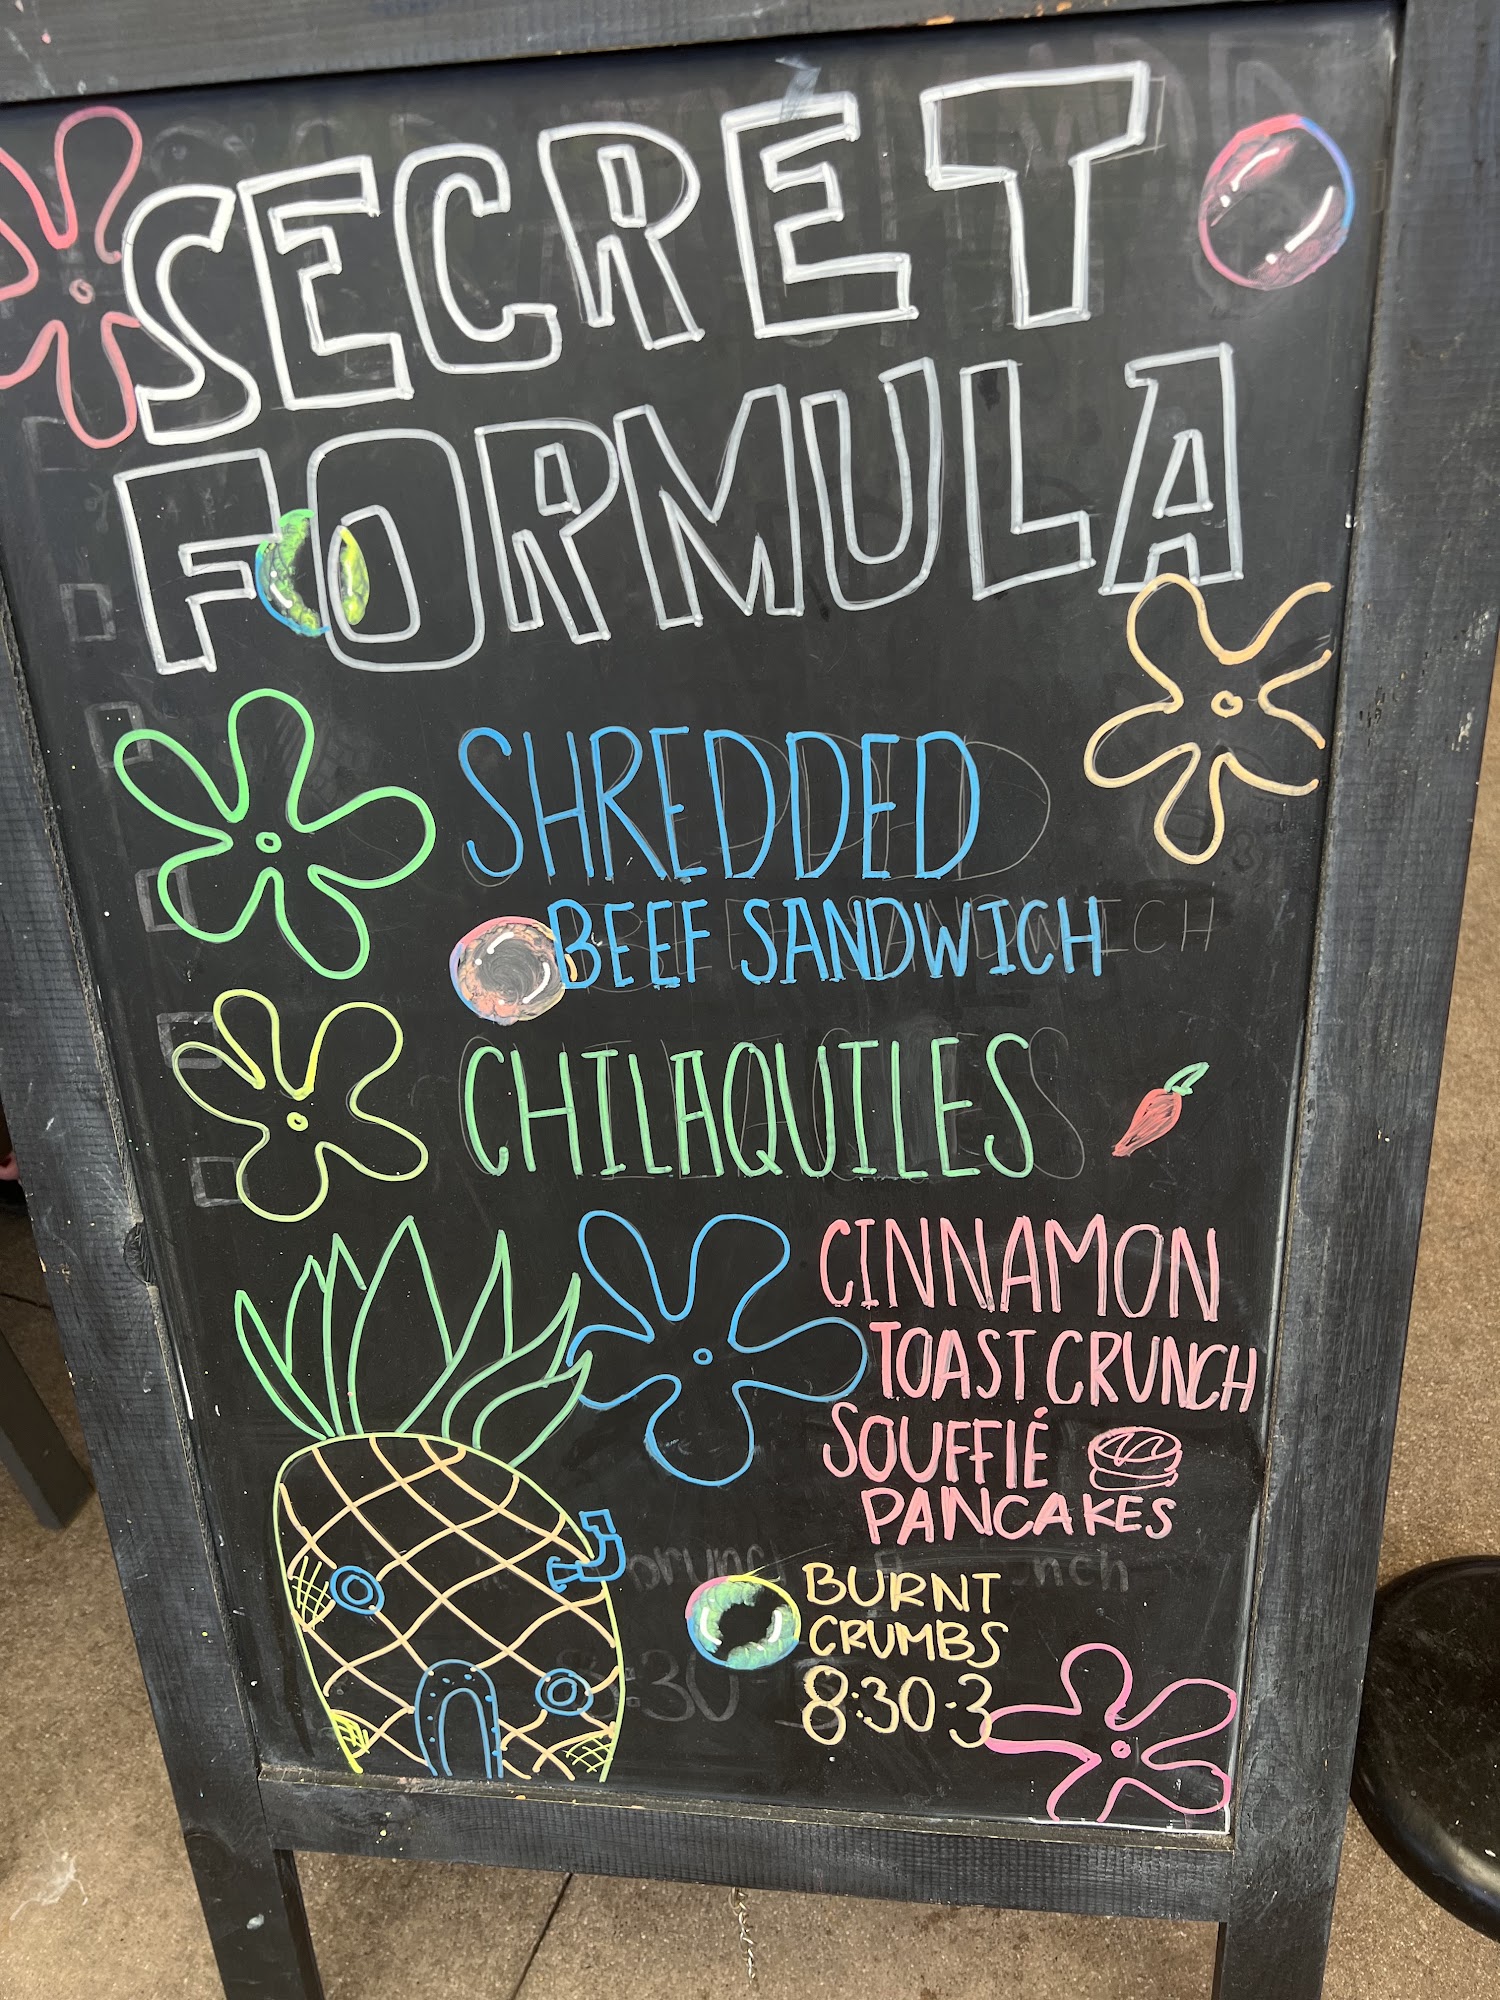 SECRET
FORMULA
SHREDDED
BEEF SANDWICH
CHILAQUILES
CINNAMON
TOAST CRUNCH
SOUFFLÉ
PANCAKES
BURNT
CRUMBS
8:30-3